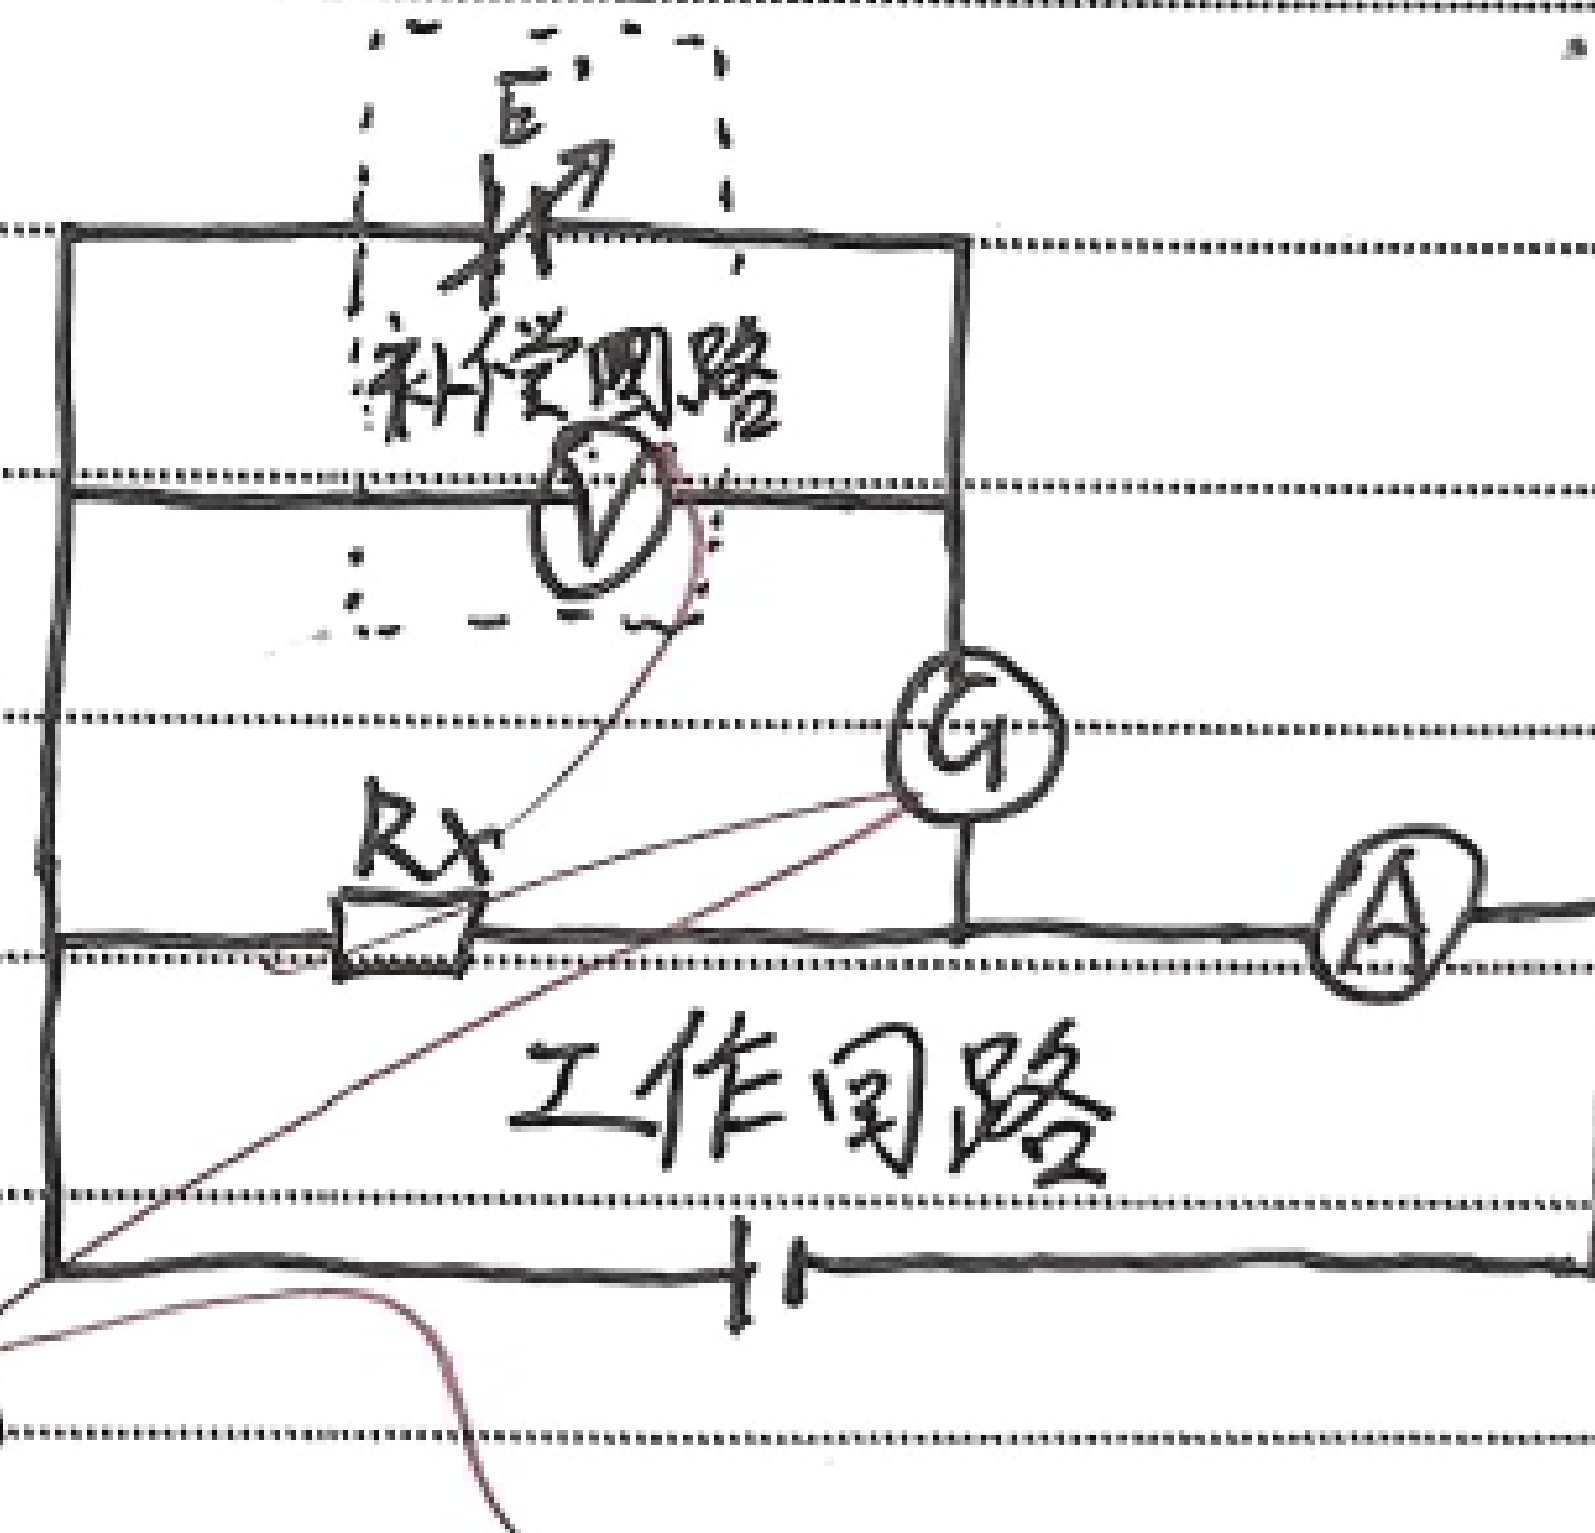 E
补偿回路
V
G
Rx
A
工作回路